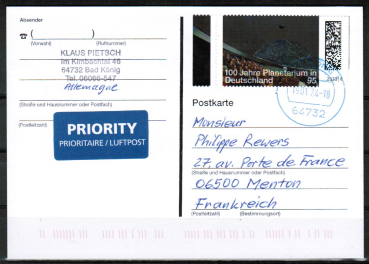 Absender
☎ (            )
(Vorwahl) (Rufnummer)
KLAUS PIETSCH
Im Kimbachtal 46
64732 Bad König
Tel. 06066-547
Allemagne
(Straße und Hausnummer oder Postfach)
(Postleitzahl)
PRIORITY
PRIORITAIRE / LUFTPOST
100 Jahre Planetarium in
Deutschland 95
64732
Postkarte
Monsieur
Philippe Rewers
27. av. Porte de France
(Straße und Hausnummer oder Postfach)
06500 Menton
Frankreich
(Postleitzahl) (Bestimmungsort)